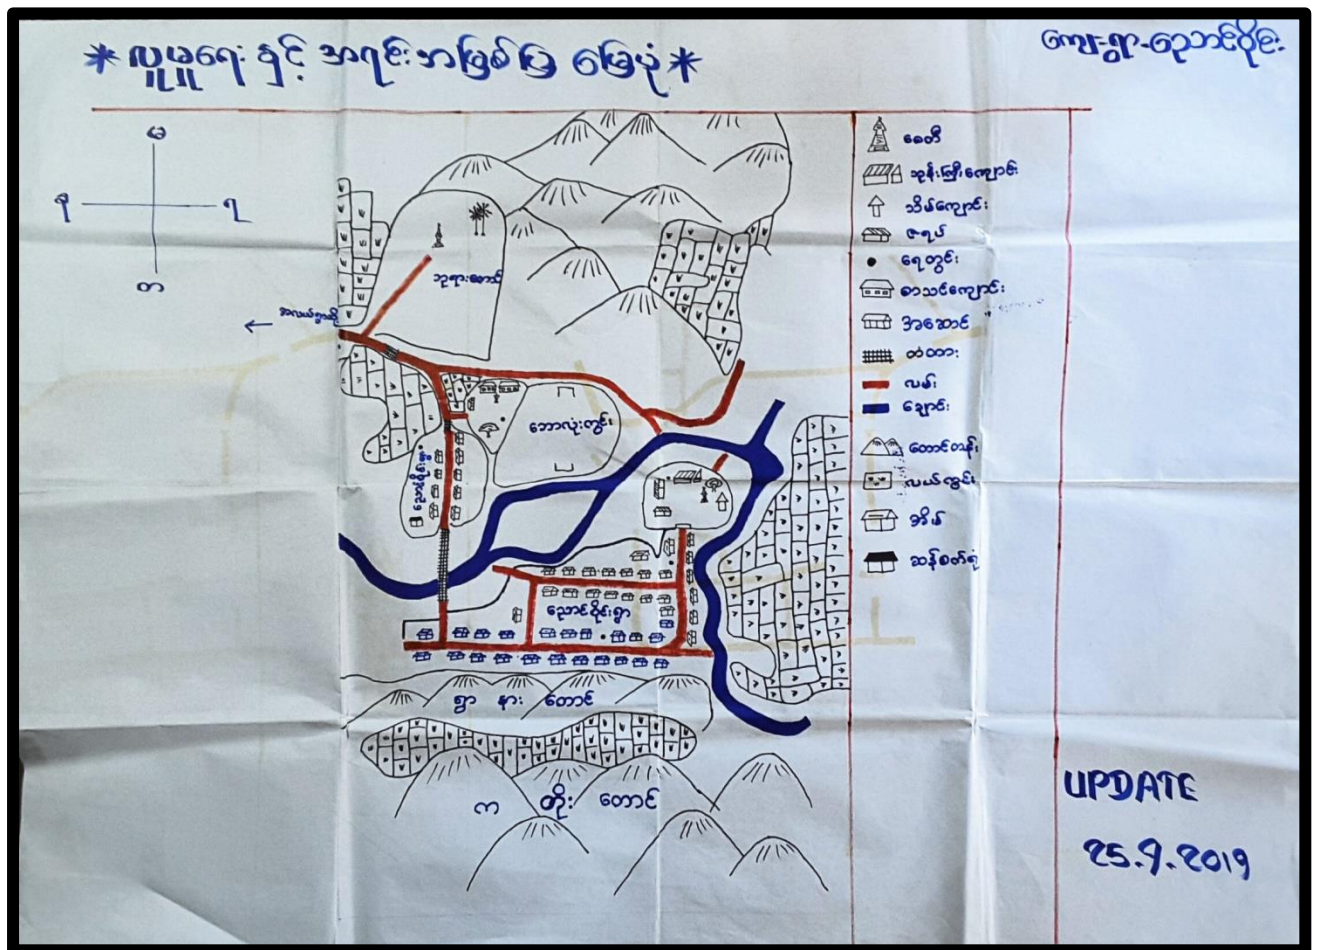 * လူမှုရေး နှင့် အရင်းအမြစ်ပြ မြေပုံ *
ကျေးရွာ-ညောင်ဝိုင်း
မ
န
ရ
တ
အလယ်ရွာသို့
ဘုရားတောင်
ဘောလုံးကွင်း
ညောင်ဝိုင်းရွာ
ရွာ နား တောင်
က တိုး တောင်
စေတီ
ဘုန်းကြီးကျောင်း
သိမ်ကျောင်း
ဇရပ်
ရေတွင်း
စာသင်ကျောင်း
အဆောင်
တံတား
လမ်း
ချောင်း
တောင်တန်း
လယ်ကွင်း
အိမ်
ဆန်စက်ရုံ
UPDATE
25.9.2019